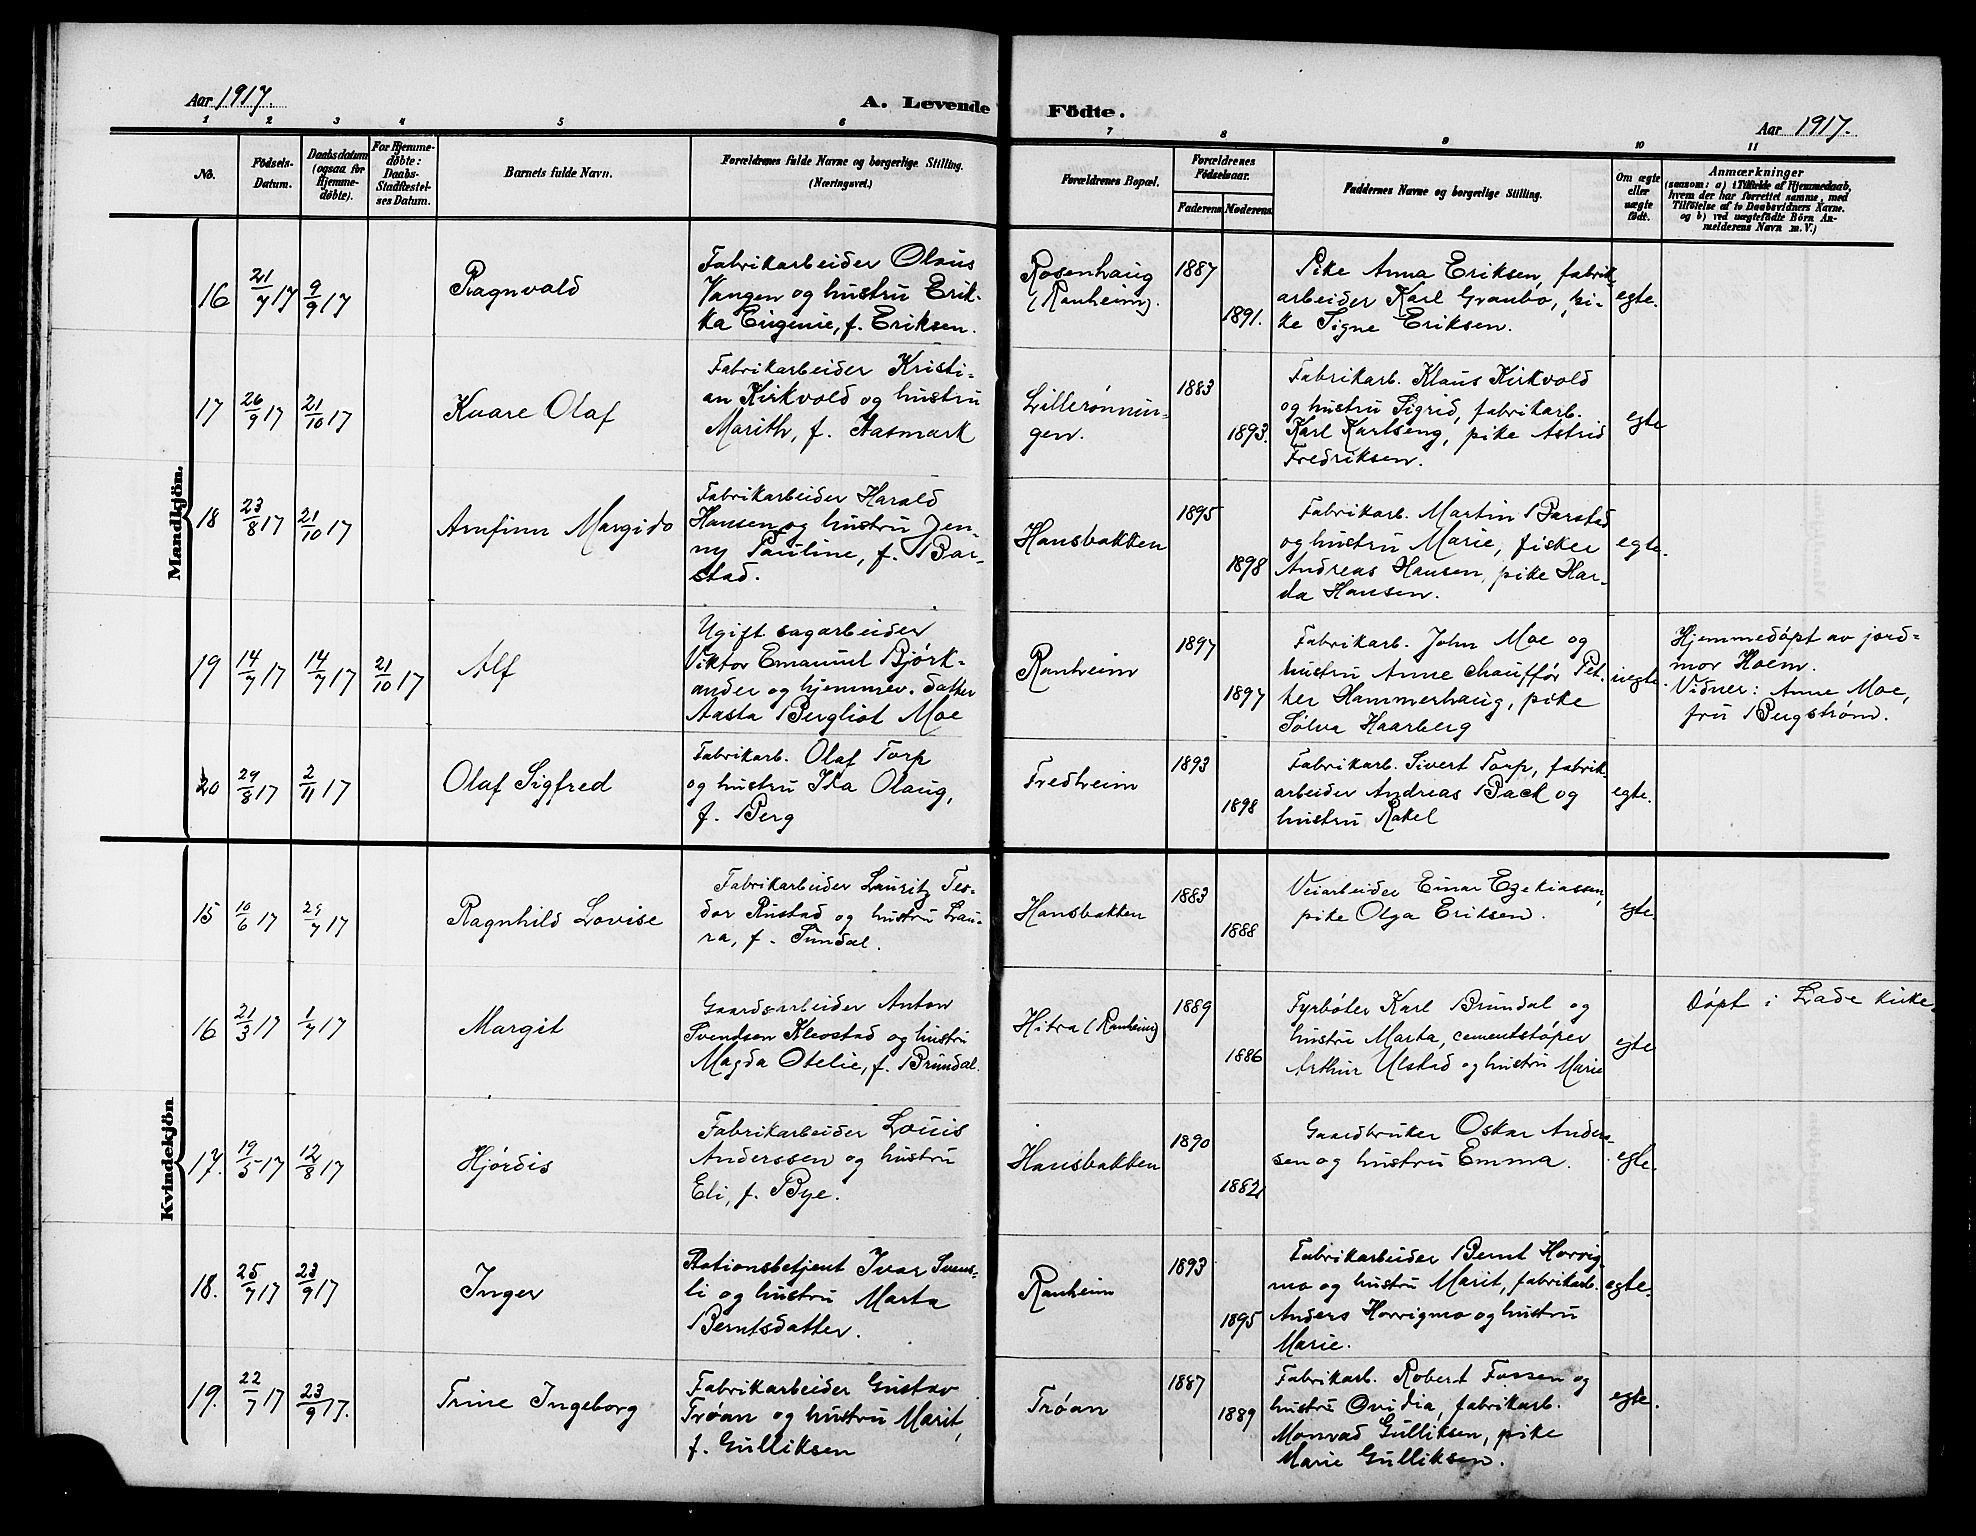 Aar 1917.
A. Levende Födte.
Aar 1917.
1 2 3 4 5 6 7 8 9 10 11
No.
Födsels-
Datum.
Daabsdatum
(ogsaa for
Hjemme-
døbte).
For Hjemme-
døbte:
Daabs-
Stadfæstel-
ses Datum.
Barnets fulde Navn.
Forældrenes fulde Navne og borgerlige Stilling.
(Næringsvei.)
Forældrenes Bopæl.
Forældrenes
Födselsaar.
Faderens Moderens
Faddernes Navne og borgerlige Stilling.
Om ægte
eller
uægte
födt.
Anmærkninger
(saasom: a) i Tilfælde af Hjemmedaab,
hvem der har forrettet samme, med
Tilföielse af to Daabsvidners Navne.
og b) ved uægtefödte Börn An-
melderens Navn m. V.)
Mandkjön.
16
21/7 17
9/9 17
Ragnvald
Fabrikarbeider Olaus
Vangen og hustru Erik-
ka Eugenie, f. Eriksen.
Rosenhaug
(Ranheim).
1887
1891.
Pike Anna Eriksen, fabrik-
arbeider Karl Granbo, pi-
ke Signe Eriksen.
egte.
17
26/9 17
21/10 17
Kvare Olaf
Fabrikarbeider Kristi-
an Kirkvold og hustru
Marith, f. Aasmark
Lillerønnin-
gen.
1883
1893.
Fabrikarb. Klaus Kirkvold
og hustru Sigrid, fabrikarb.
Karl Karlseng, pike Astrid
Fredriksen.
egte
18
23/8 17
21/10 17
Arnfinn Margido
Fabrikarbeider Harald
Hansen og hustru Jen-
ny Pauline, f. Bar-
stad.
Hansbakken
1895
1898
Fabrikarb. Martin Barstad
og hustru Marie, fisker
Andreas Hansen, pike Har-
da Hansen.
egte.
19
14/7 17
14/7 17
21/10 17
Alf
Ugift sagarbeider
Viktor Emanuel Bjørk-
ander og hjemmev. datter
Aasta Bergliot Moe
Ranheim
1897
1897
Fabrikarb. John Moe og
hustru Anne chauffør Pet-
ter Hammerhaug, pike
Solva Haarberg
uegte.
Hjemmedøpt av jord-
mor Hoem.
Vidner: Anne Moe,
fru Bergstrøm.
20
29/8 17
2/11 17
Olaf Sigfred
Fabrikarb. Olaf Torp
og hustru Ida Olaug,
f. Berg
Fredheim
1893
1898
Fabrikarb. Sivert Torp, fabrik
arbeider Andreas Back og
hustru Rakel
egte.
Kvindekjön
15
10/6 17
29/7 17
Ragnhild Lovise
Fabrikarbeider Lauritz Teo-
dor Rustad og hustru Lau-
ra, f. Sundal.
Hansbakken
1883
1888
Veiarbeider Einar Ezekiassen,
pike Olga Eriksen.
egte.
16
21/3 17
1/7 17
Margit
Gaardsarbeider Anton
Svendsen Kleostad og hustru
Magda Otelie, f. Brundal.
Hitra (Ranheim)
1889
1886
Fyrbøter Karl Brundal og
hustru Marta, cementstøper
Arthur Ulstad og hustru Marie
egte
Døpt i Lade kirke.
17.
19/5 17
12/8 17
Hjørdis
Fabrikarbeider Louis
Anderssen og hustru
Eli, f. Bye.
Hansbakken
1890
1882
Gaardbruker Oskar Anders-
sen og hustru Emma.
egte.
18.
25/7 17
23/9 17
Inger
Stationsbetjent Ivar Svens-
li og hustru Marta
Berntsdatter.
Ranheim
1893
1895
Fabrikarbeider Bernt Horrig-
mo og hustru Marit, fabrikarb.
Anders Horrigmo og hustru
Marie.
egte.
19.
22/7 17
23/9 17.
Trine Ingeborg
Fabrikarbeider Gustav
Trøan og hustru Marit,
f. Gulliksen
Trøan
1887
1889
Fabrikarb. Robert Fossen og
hustru Ovidia, fabrikarb.
Monrad Gulliksen, pike
Marie Gulliksen.
egte.